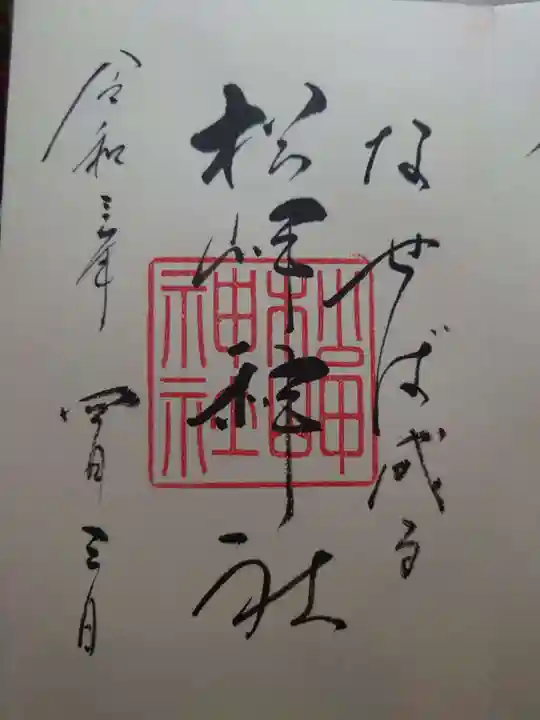 なせば成る
松岬神社
令和三年 四月三日